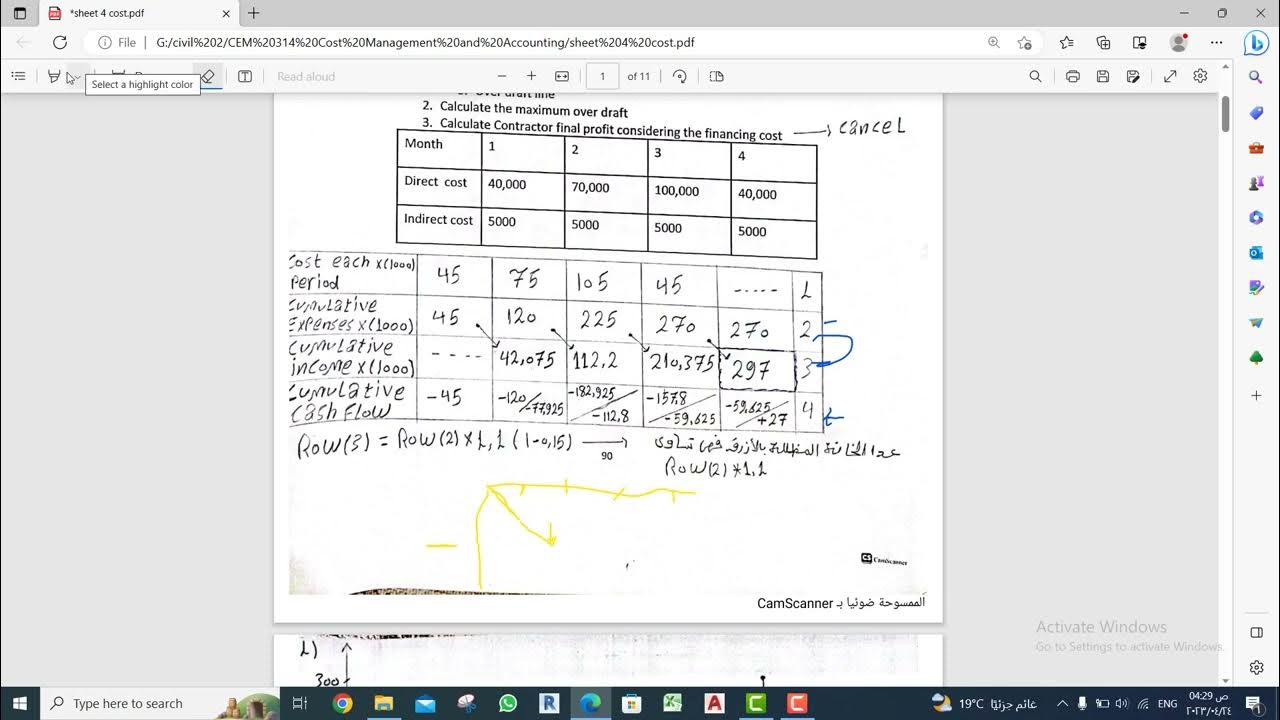 *sheet 4 cost.pdf
File
G:/civil%202/CEM%20314%20Cost%20Management%20and%20Accounting/sheet%204%20cost.pdf
Read aloud
1
of 11
Select a highlight color
1. Over draft line
2. Calculate the maximum over draft
3. Calculate Contractor final profit considering the financing cost → cancel
Month 1 2 3 4
Direct cost 40,000 70,000 100,000 40,000
Indirect cost 5000 5000 5000 5000
Cost each x(1000) period 45 75 105 45 ----- 1
Cumulative Expenses x(1000) 45 120 225 270 270 2
Cumulative income x(1000) ---- 42,075 112,2 210,375 297 3
Cumulative Cash Flow -45 -120/-77,925 -182,925/-112,8 -157,8/-59,625 -59,625/+27 4
Row(3) = Row(2) * 1,1 (1-0,15) → عدا الخانة المظللة بالأزرق فهى تساوى
90
Row(2) *1,1
CS CamScanner
الممسوحة ضوئيا بـ CamScanner
1)
300
Activate Windows
Go to Settings to activate Windows.
Type here to search
19°C غائم جزئيًا
ENG
04:29 ص
٢٠٢٣/٠٤/٢٤